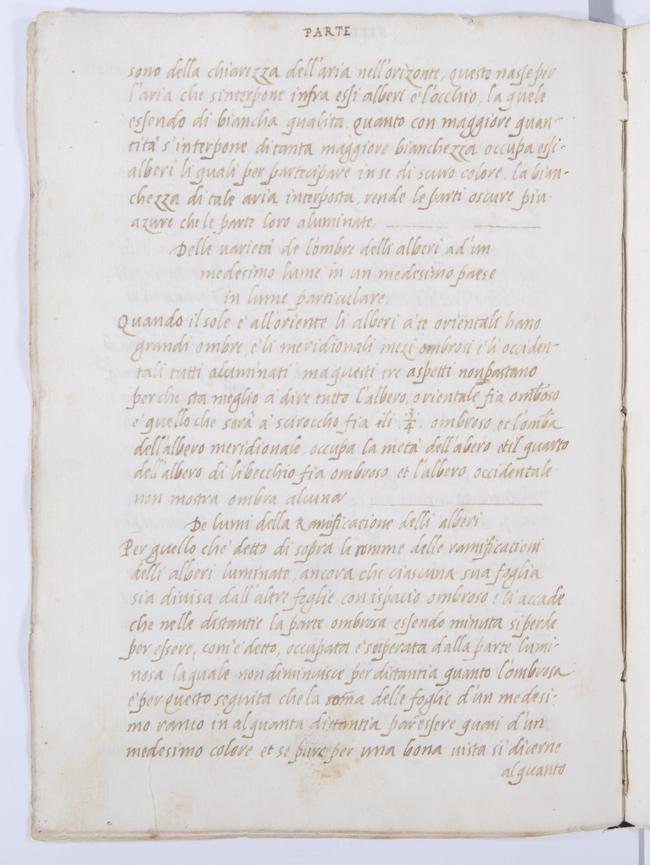 PARTE
sono della chiarezza dell'aria nell'orizonte, questo nasse per
l'aria che s'interpone infra essi alberi e l'occhio, la quele
essendo di biancha qualita, quanto con maggiore quan-
tità s'interpone di tanta maggiore bianchezza occupa essi-
alberi li quali per partecipare in se di scuro colore, la bian-
chezza di tale aria interposta, rende le parti oscure piu-
azure che le parte loro aluminate,
Delle varietà de l'ombre delli alberi ad'un
medesimo lume in un medesimo paese
in lume particulare.
Quando il sole e' all'oriente li alberi a'te orientali hano
grandi ombre, e' li meridionali mezi ombrosi e' li occiden-
tali tutti aluminati ma questi tre aspetti non bastano
perche sta meglio a' dire tutto l'albero, orientale fia ombroso
e' quello che sara' a' sciroccho fia ili 3/4 ombroso, et l'omba
dell'albero meridionale, occupa la metà dell'abero et il quarto
dell'albero di libecchio fia ombroso et l'albero occidentale
non mostra ombra alcuna
De lumi della Ramificatione delli alberi
Per quello che' detto di sopra le somme delle ramificationi
delli alberi luminate, ancora che ciascuna sua foglia
sia divisa dall'altre foglie con ispacio ombroso e' li accade
che nelle distantie la parte ombrosa essendo minuta si perde
per essere, com'e' detto, occupata e' superata dalla parte lumi-
nosa la quale non diminuisce per distantia quanto l'ombrosa
e' per questo seguita che la soma delle foglie d'un medesi-
mo ramo in alquanta distantia par essere quasi d'un
medesimo colore et se pure per una bona vista si dicerne
alquanto